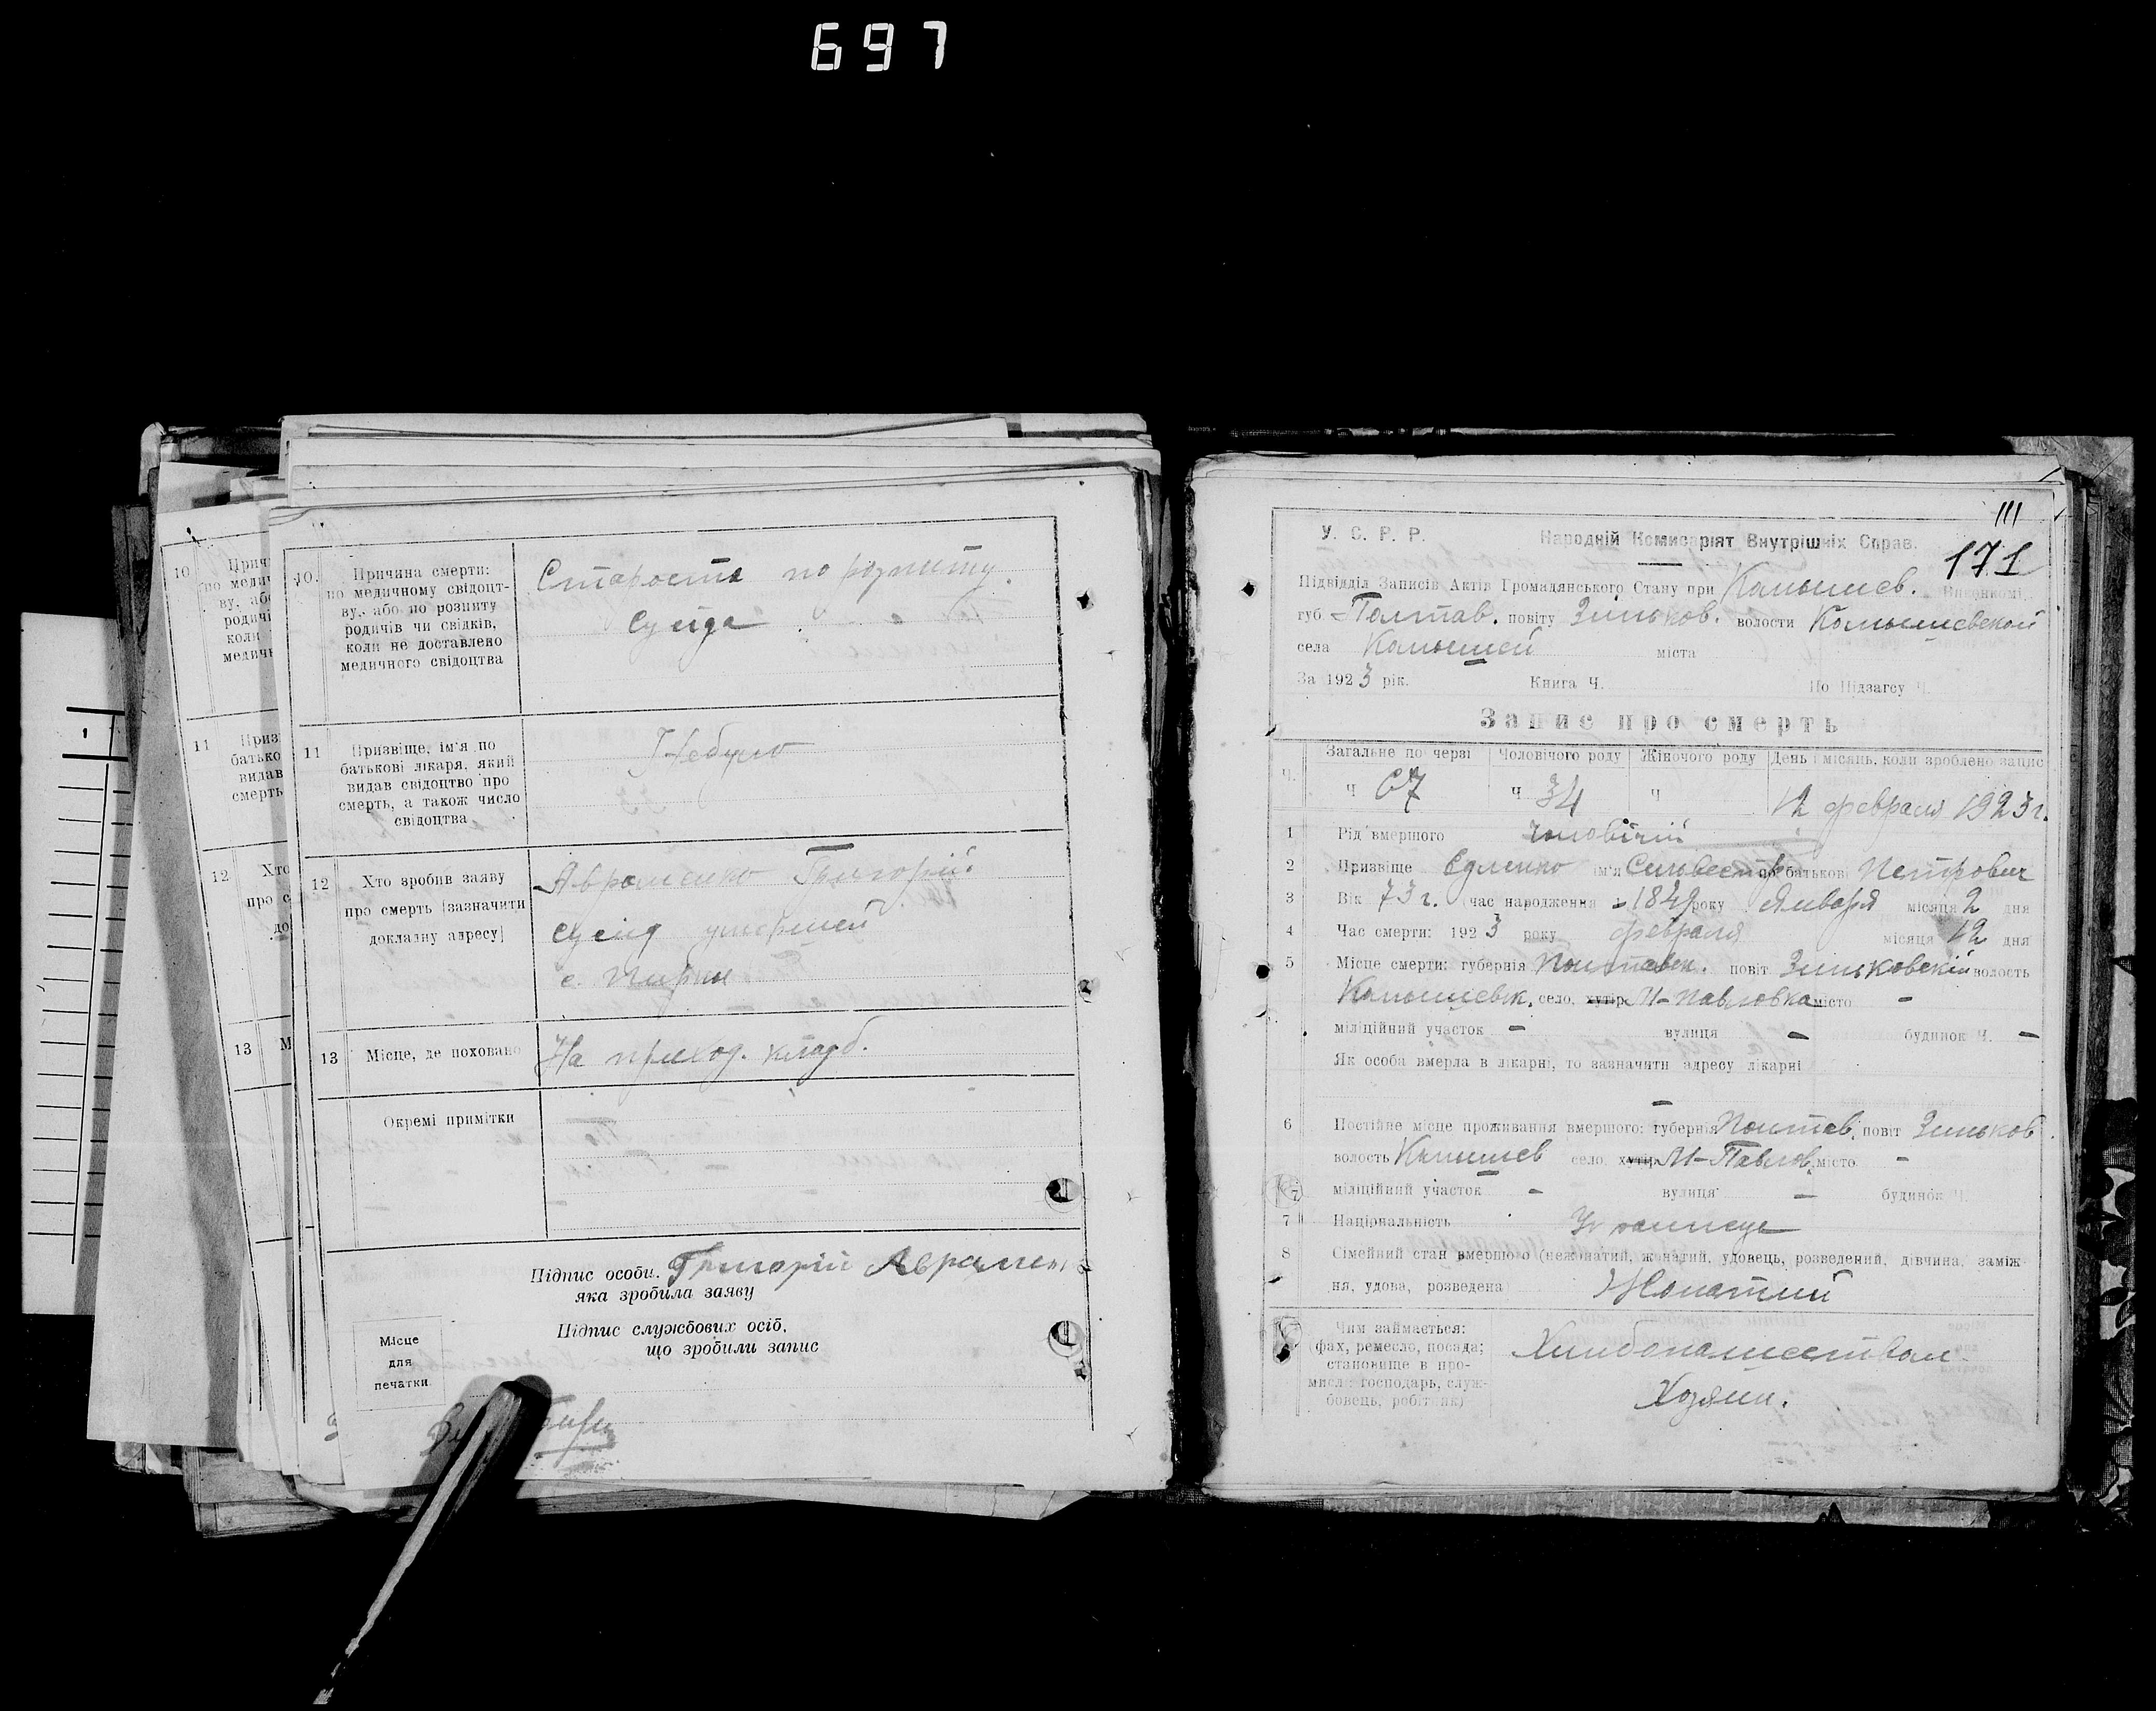 697
10
11
12
13
10.
Причина смерти:
по медичному свідоцт-
ву, або по розпиту
родичів чи свідків,
коли не доставлено
медичного свідоцтва
Старость по розпиту
сусіда
11
Призвіще, ім'я по
батькові лікаря, який
видав свідоцтво про
смерть, а також число
свідоцтва
Небуло
12
Хто зробив заяву
про смерть (зазначити
докладну адресу)
Авраменко Григорій
сусід умершей
с. Пирки
13
Місце, де поховано
На приход. кладб.
Окремі примітки
Підпис особи,
яка зробила заяву
Григорій Авраменко
Підпис службових осіб,
що зробили запис
Місце
для
печатки
111
У. С. Р. Р. Народній Комисаріят Внутрішніх Справ.
171
Підвідділ Записів Актів Громадянського Стану при Камышев. Виконкомі
губ Полтав. повіту Зиньков. волости Камышевской
села Камышей міста
За 1923 рік. Книга Ч. По Підзагсу Ч.
Запис про смерть
Ч. Загальне по черзі Чоловічого роду Жіночого роду День і місяць, коли зроблено запис
Ч 67 Ч 34 Ч 12 февраля 1923 г.
1 Рід вмершого чоловічій
2 Призвіще ім'я Сильвестр по батькові Петрович
3 Вік 73 г. (час народження 1849 року Января місяця 2 дня
4 Час смерти: 1923 року февраля місяця 12 дня
5 Місце смерти: губернія Полтавск. повіт Зиньковскій волость
Камышевск. село, хутір М-Павловка місто -
міліційний участок - вулиця - будинок Ч. -
Як особа вмерла в лікарні, то зазначити адресу лікарні
-
6 Постійне місце проживання вмершого: губернія Полтав. повіт Зиньков.
волость Камышев село, хутір М-Павлов. місто -
7 міліційний участок - вулиця - будинок Ч.
7 Національність
8 Сімейний стан вмершого (нежонатий, жонатий, удовець, розведений, дівчина, заміж-
ня, удова, розведена) Жонатий
Чим займається:
(фах, ремесло, посада;
становище в про-
мислі: господарь, служ-
бовець, робітник)
Хлибопашеством
Хозяин.